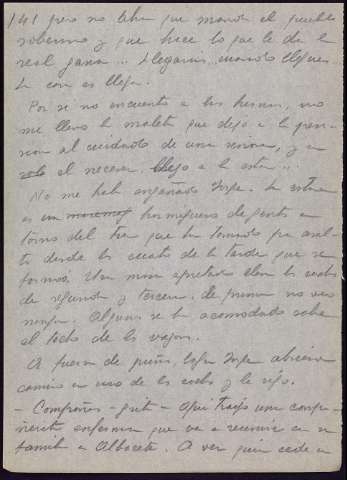 141 pero no [que] manda el pueblo
soberano y que hace lo que le da la
real gana... Llegarás cuando llegues...
La cosa es llegar.
Por si no encuentro a los hermanos, no
me llevo la maleta que dejo a la pensión
al cuidado de una señora, y
solo el neceser. Llego a la estación...
No me había engañado Jorge. La estación
es un hormiguero de gente en
torno del tren que han tomado por asalto
desde las cuatro de la tarde que se
formó. Una masa apretada llena los coches
de segunda y tercera. De primera no veo
ninguno. Algunos se han acomodado sobre
el techo de los vagones.
A fuerza de puños, logra Jorge abrirse
camino en uno de los coches y le sigo.
- Compañeros - grita - Aquí traigo una compañerita
enferma que va a reunirse con su
familia a Albacete. A ver quién cede un